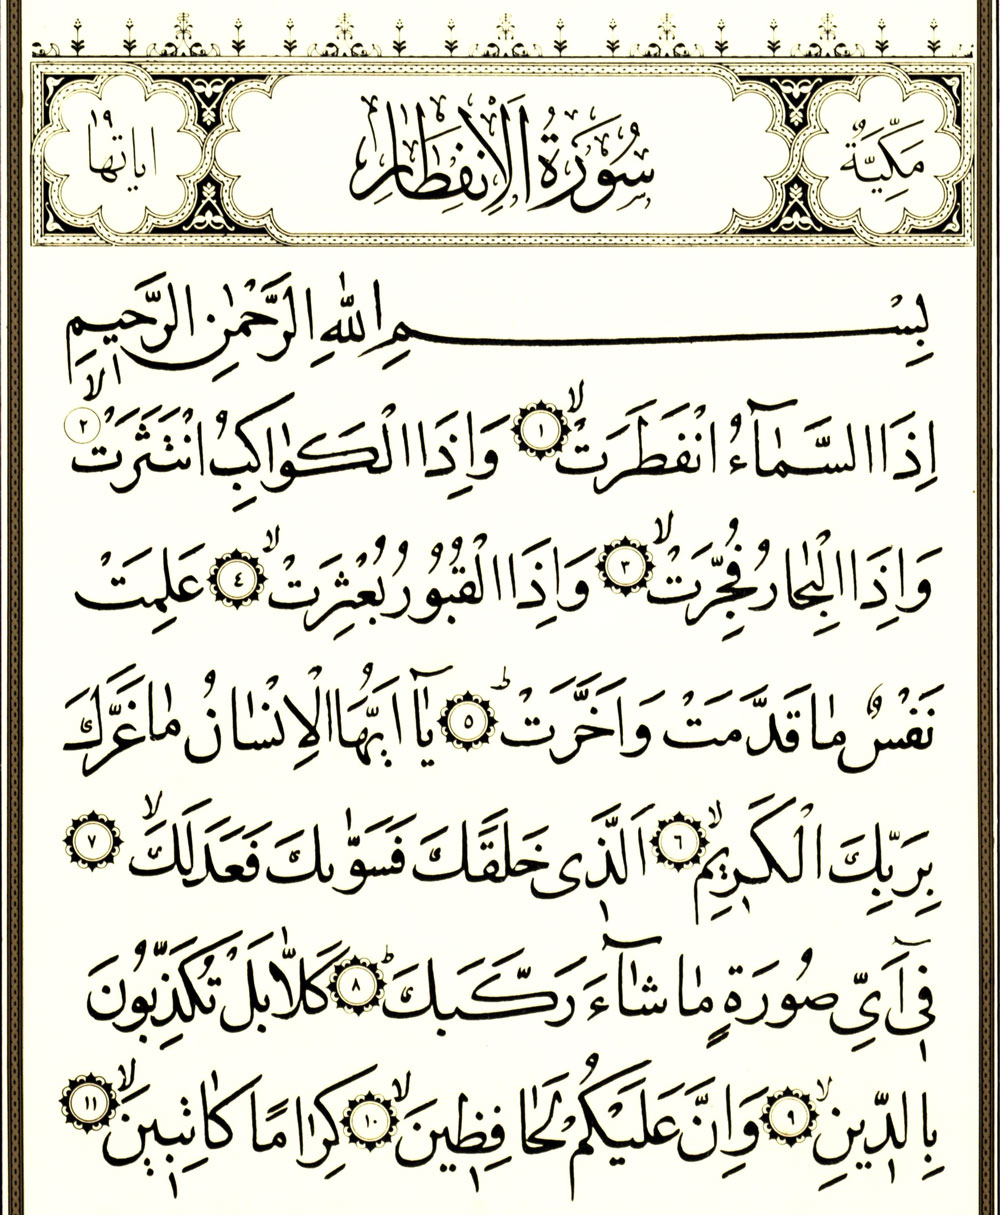 مَكِّيَّةٌ
سُورَةُ الْاِنْفِطَارِ
اياتها ١٩
بِسْمِ اللّٰهِ الرَّحْمٰنِ الرَّحٖيمِ
اِذَا السَّمَٓاءُ انْفَطَرَتْۙ ﴿١﴾ وَاِذَا الْكَوَاكِبُ انْتَثَرَتْۙ ﴿٢﴾
وَاِذَا الْبِحَارُ فُجِّرَتْۙ ﴿٣﴾ وَاِذَا الْقُبُورُ بُعْثِرَتْۙ ﴿٤﴾ عَلِمَتْ
نَفْسٌ مَا قَدَّمَتْ وَاَخَّرَتْؕ ﴿٥﴾ يَٓا اَيُّهَا الْاِنْسَانُ مَا غَرَّكَ
بِرَبِّكَ الْكَرٖيمِۙ ﴿٦﴾ اَلَّذٖى خَلَقَكَ فَسَوّٰيكَ فَعَدَلَكَۙ ﴿٧﴾
فٖٓى اَىِّ صُورَةٍ مَا شَٓاءَ رَكَّبَكَؕ ﴿٨﴾ كَلَّا بَلْ تُكَذِّبُونَ
بِالدّٖينِۙ ﴿٩﴾ وَاِنَّ عَلَيْكُمْ لَحَافِظٖينَۙ ﴿١٠﴾ كِرَامًا كَاتِبٖينَۙ ﴿١١﴾